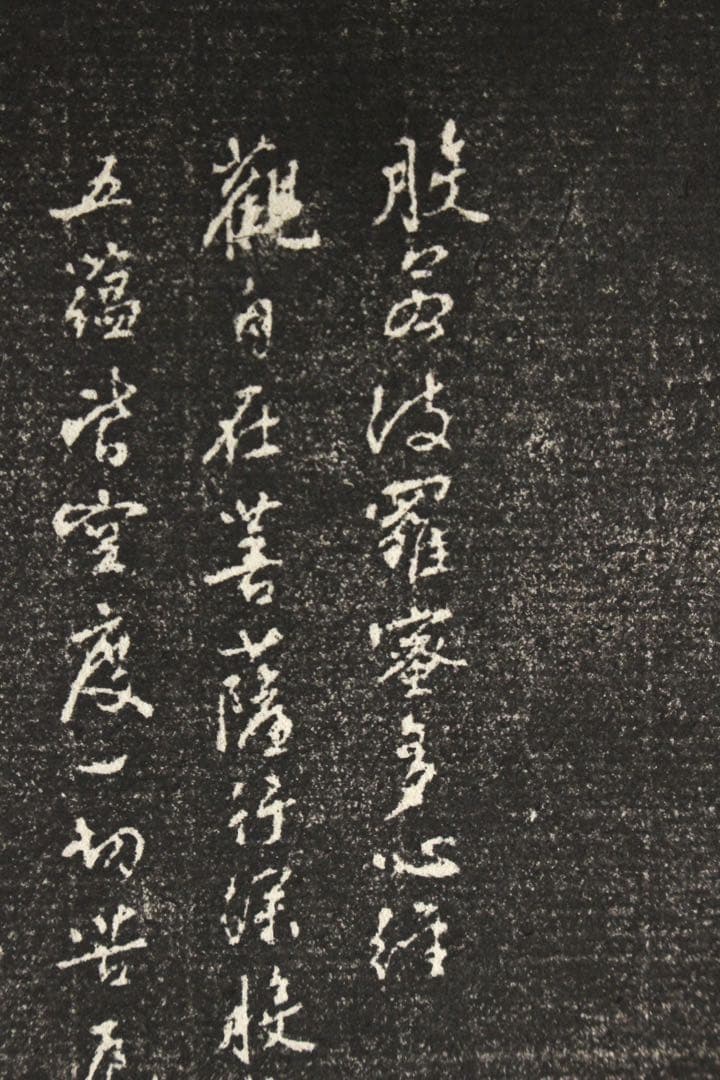 般若波羅蜜多心經
觀自在菩薩行深般
五蘊皆空度一切苦厄